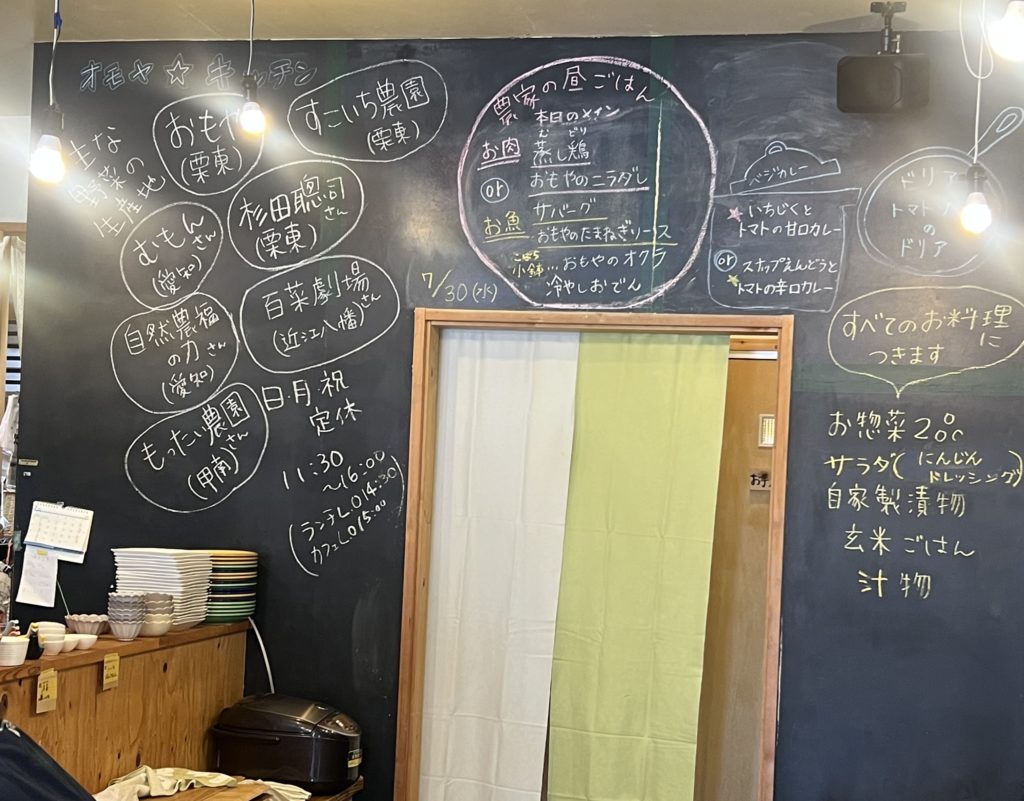 オモヤ☆キッチン
主な
野菜の
生産地
おもや
(栗東)
すこいち農園
(栗東)
杉田聰司さん
(栗東)
むもんさん
(愛知)
百菜劇場さん
(近江八幡)
自然農福
の力さん
(愛知)
もったい農園さん
(甲南)
日・月・祝
定休
11:30
~16:00
(ランチL.O14:30
カフェL.O15:00)
農家の昼ごはん
本日のメイン
お肉 蒸し鶏
むどり
おもやのニラダレ
or
お魚 サバーグ
おもやのたまねぎソース
こばち
小鉢…おもやのオクラ
冷やしおでん
7/30(水)
ベジカレー
☆いちじくと
トマトの甘口カレー
or スナップえんどうと
☆トマトの辛口カレー
ドリア
の
ドリア
すべてのお料理に
つきます
お惣菜2つ
サラダ(にんじん
ドレッシング)
自家製漬物
玄米ごはん
汁物
お手